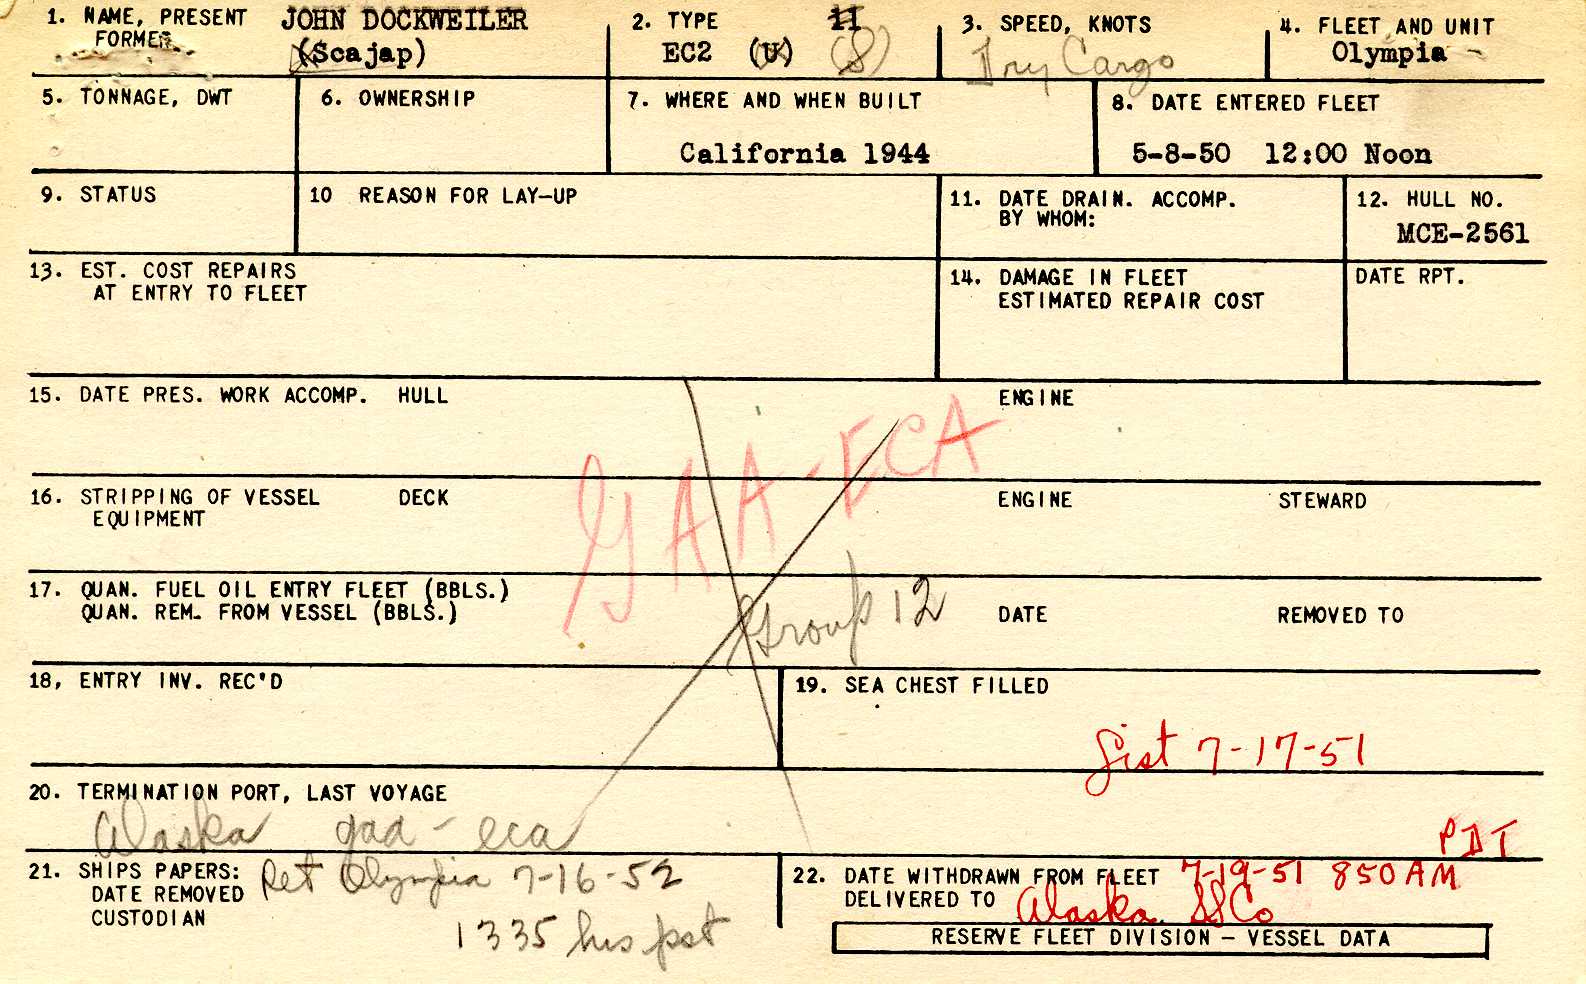 1. NAME, PRESENT JOHN DOCKWEILER
FORMER (Scajap)
2. TYPE 11
EC2 (U) (S)
3. SPEED, KNOTS
Dry Cargo
4. FLEET AND UNIT
Olympia
5. TONNAGE, DWT
6. OWNERSHIP
7. WHERE AND WHEN BUILT
California 1944
8. DATE ENTERED FLEET
5-8-50 12:00 Noon
9. STATUS
10 REASON FOR LAY-UP
11. DATE DRAIN. ACCOMP.
BY WHOM:
12. HULL NO.
MCE-2561
13. EST. COST REPAIRS
AT ENTRY TO FLEET
14. DAMAGE IN FLEET
ESTIMATED REPAIR COST
DATE RPT.
15. DATE PRES. WORK ACCOMP. HULL ENGINE
GAA-ECA
16. STRIPPING OF VESSEL DECK ENGINE STEWARD
EQUIPMENT
17. QUAN. FUEL OIL ENTRY FLEET (BBLS.)
QUAN. REM. FROM VESSEL (BBLS.) DATE REMOVED TO
Group 12
18, ENTRY INV. REC'D
19. SEA CHEST FILLED
7-17-51
20. TERMINATION PORT, LAST VOYAGE
Alaska gaa-eca
PDT
21. SHIPS PAPERS: Ret Olympia 7-16-52
DATE REMOVED
CUSTODIAN 1335 hrs pst
22. DATE WITHDRAWN FROM FLEET 7-19-51 850 AM
DELIVERED TO Alaska SSCo
RESERVE FLEET DIVISION - VESSEL DATA